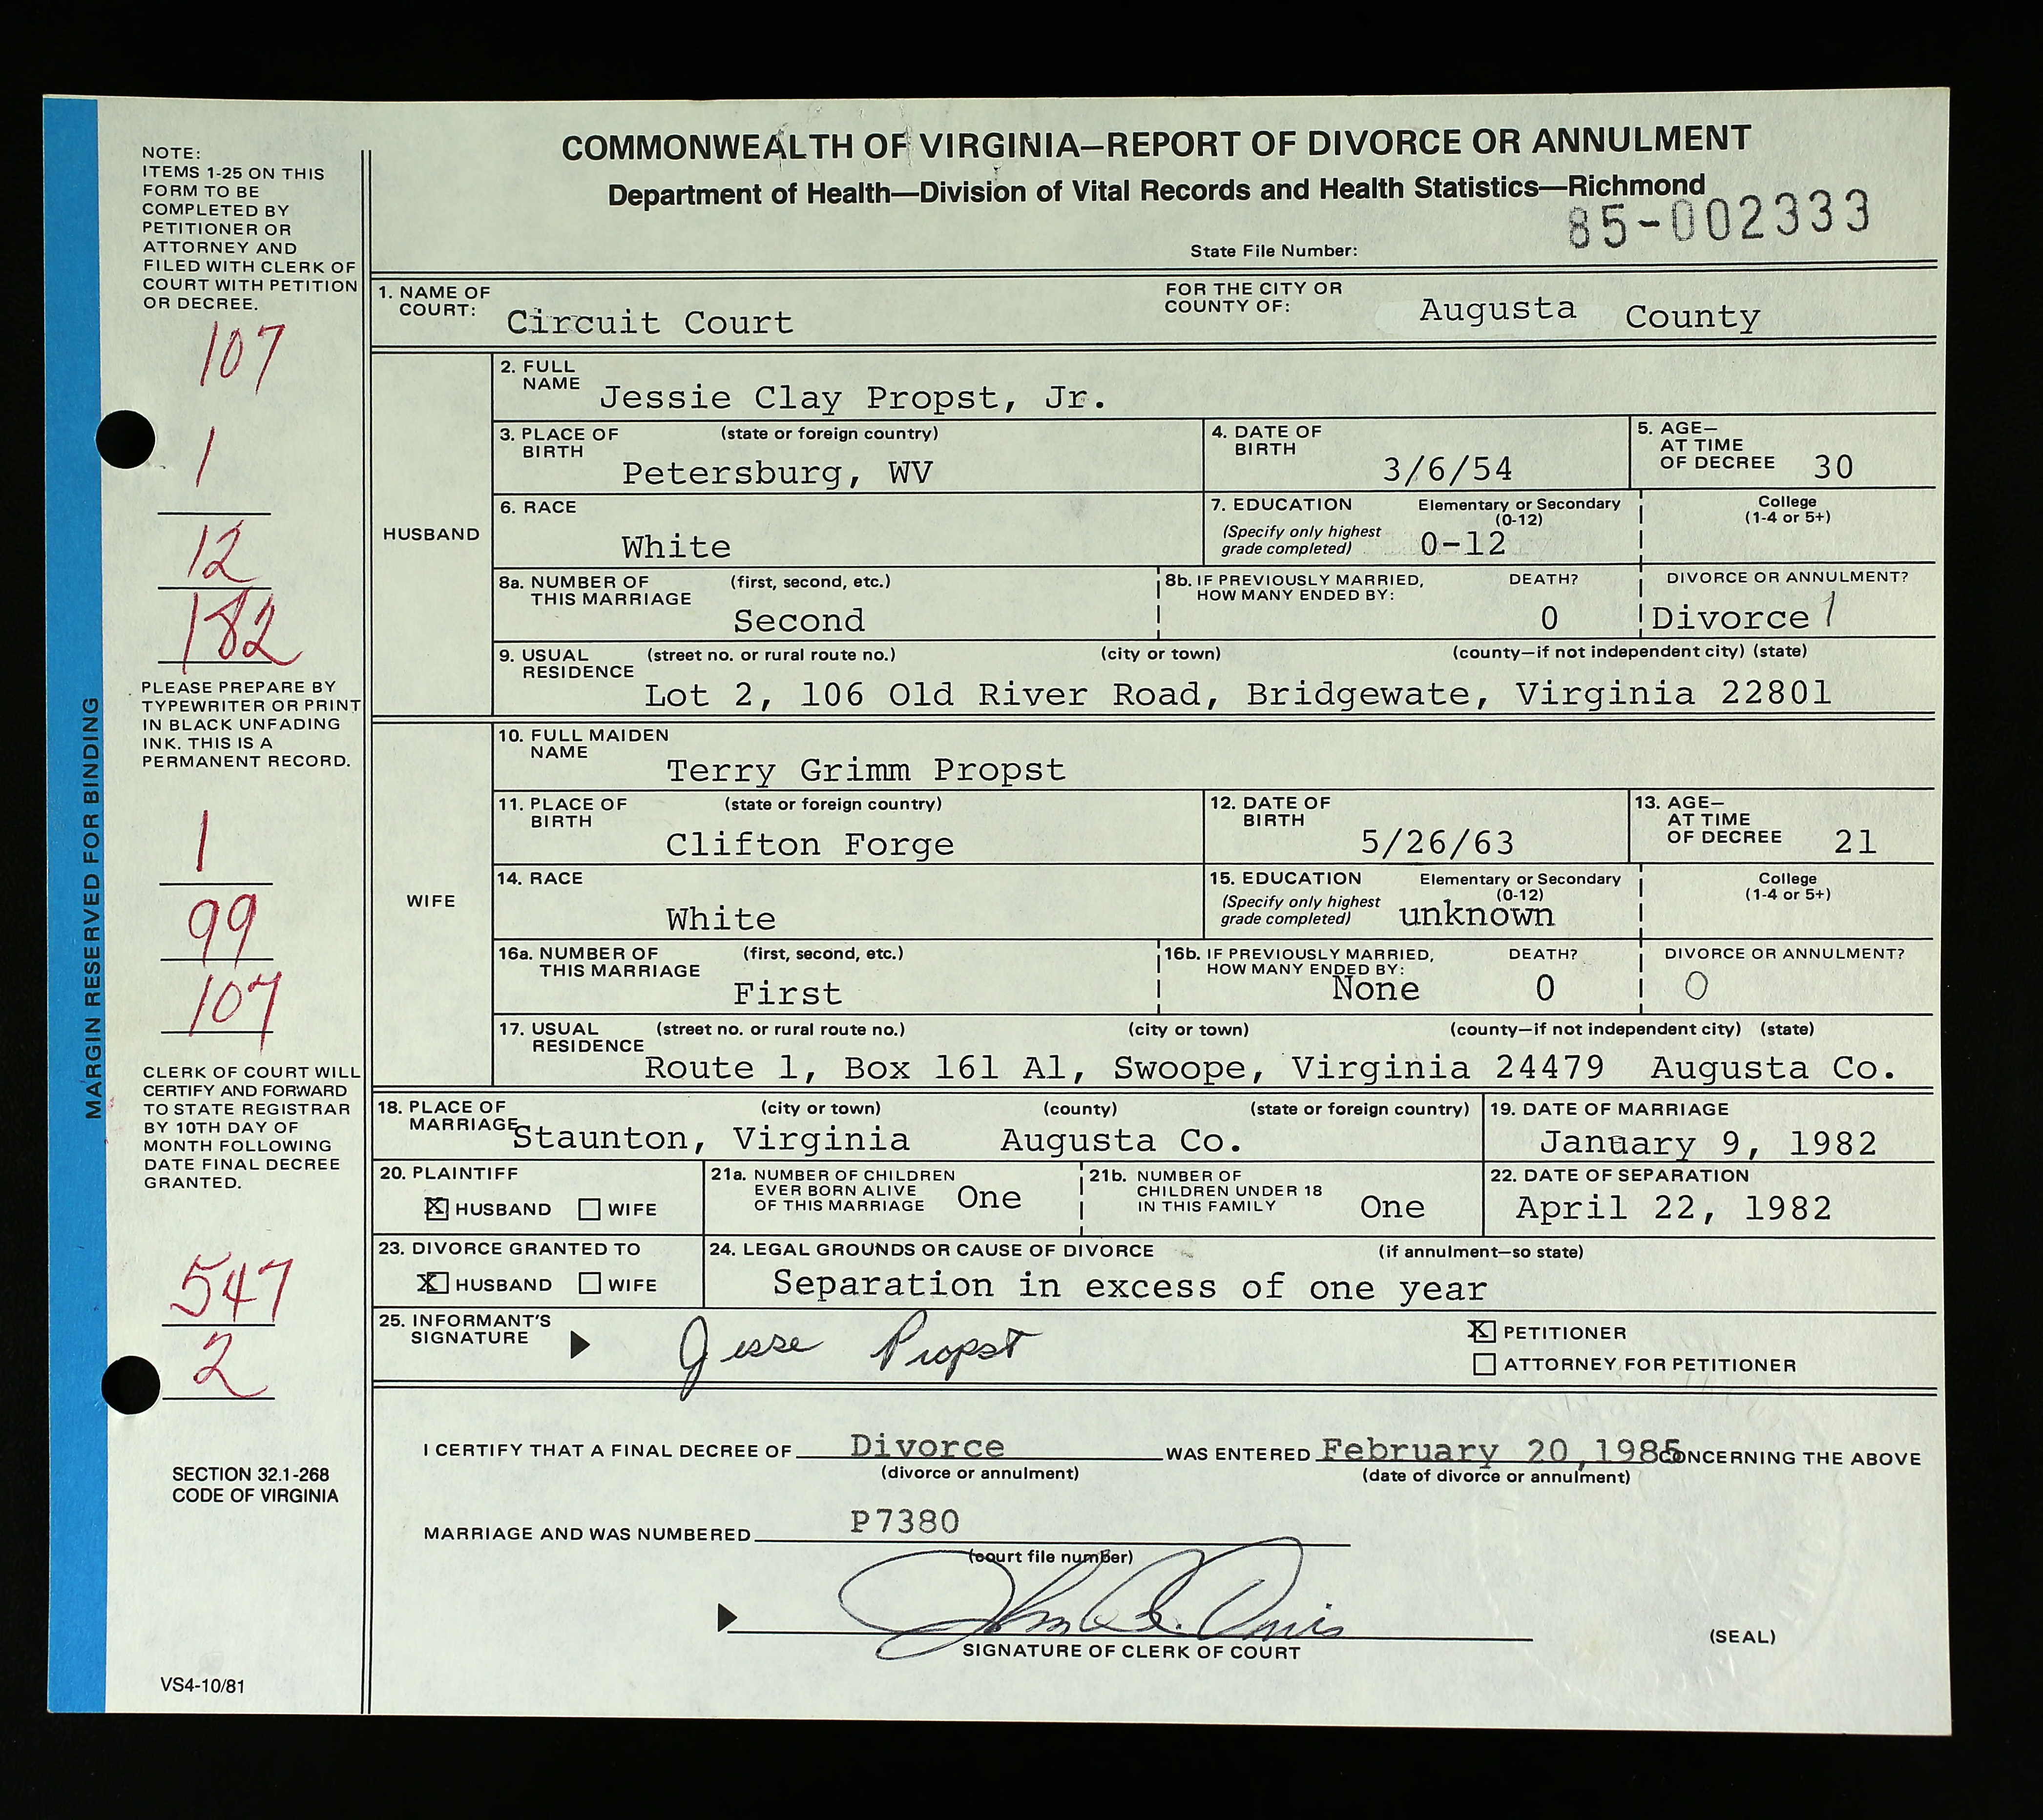 COMMONWEALTH OF VIRGINIA—REPORT OF DIVORCE OR ANNULMENT
Department of Health—Division of Vital Records and Health Statistics—Richmond
State File Number: 85-002333
MARGIN RESERVED FOR BINDING
NOTE:
ITEMS 1-25 ON THIS
FORM TO BE
COMPLETED BY
PETITIONER OR
ATTORNEY AND
FILED WITH CLERK OF
COURT WITH PETITION
OR DECREE.
107
1
12
182
PLEASE PREPARE BY
TYPEWRITER OR PRINT
IN BLACK UNFADING
INK. THIS IS A
PERMANENT RECORD.
1
99
107
CLERK OF COURT WILL
CERTIFY AND FORWARD
TO STATE REGISTRAR
BY 10TH DAY OF
MONTH FOLLOWING
DATE FINAL DECREE
GRANTED.
547
2
SECTION 32.1-268
CODE OF VIRGINIA
VS4-10/81
1. NAME OF COURT: Circuit Court FOR THE CITY OR COUNTY OF: Augusta County
HUSBAND
2. FULL NAME Jessie Clay Propst, Jr.
3. PLACE OF BIRTH (state or foreign country) Petersburg, WV
4. DATE OF BIRTH 3/6/54
5. AGE— AT TIME OF DECREE 30
6. RACE White
7. EDUCATION (Specify only highest grade completed) Elementary or Secondary (0-12) 0-12 College (1-4 or 5+)
8a. NUMBER OF THIS MARRIAGE (first, second, etc.) Second
8b. IF PREVIOUSLY MARRIED, HOW MANY ENDED BY: DEATH? 0 DIVORCE OR ANNULMENT? Divorce 1
9. USUAL RESIDENCE (street no. or rural route no.) (city or town) (county—if not independent city) (state)
Lot 2, 106 Old River Road, Bridgewate, Virginia 22801
WIFE
10. FULL MAIDEN NAME Terry Grimm Propst
11. PLACE OF BIRTH (state or foreign country) Clifton Forge
12. DATE OF BIRTH 5/26/63
13. AGE— AT TIME OF DECREE 21
14. RACE White
15. EDUCATION (Specify only highest grade completed) Elementary or Secondary (0-12) unknown College (1-4 or 5+)
16a. NUMBER OF THIS MARRIAGE (first, second, etc.) First
16b. IF PREVIOUSLY MARRIED, HOW MANY ENDED BY: None DEATH? 0 DIVORCE OR ANNULMENT? 0
17. USUAL RESIDENCE (street no. or rural route no.) (city or town) (county—if not independent city) (state)
Route 1, Box 161 A1, Swoope, Virginia 24479 Augusta Co.
18. PLACE OF MARRIAGE (city or town) (county) (state or foreign country)
Staunton, Virginia Augusta Co.
19. DATE OF MARRIAGE January 9, 1982
20. PLAINTIFF X HUSBAND WIFE
21a. NUMBER OF CHILDREN EVER BORN ALIVE OF THIS MARRIAGE One
21b. NUMBER OF CHILDREN UNDER 18 IN THIS FAMILY One
22. DATE OF SEPARATION April 22, 1982
23. DIVORCE GRANTED TO X HUSBAND WIFE
24. LEGAL GROUNDS OR CAUSE OF DIVORCE (if annulment—so state)
Separation in excess of one year
25. INFORMANT'S SIGNATURE Jesse Propst
X PETITIONER
ATTORNEY FOR PETITIONER
I CERTIFY THAT A FINAL DECREE OF Divorce WAS ENTERED February 20,1985 CONCERNING THE ABOVE
(divorce or annulment) (date of divorce or annulment)
MARRIAGE AND WAS NUMBERED P7380
(court file number)
John B. Davis
SIGNATURE OF CLERK OF COURT
(SEAL)